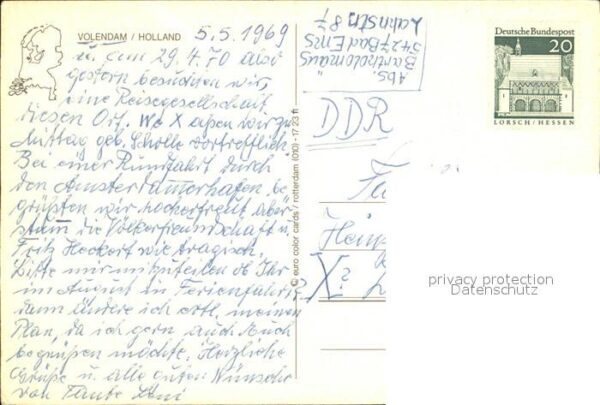 VOLENDAM / HOLLAND
5.5.1969
u. am 29.4.70 also
gestern besuchten wir,
eine Reisegesellschaft
diesen Ort. Wo X aßen wir zu
Mittag geb. Scholle vortrefflich.
Bei einer Rundfahrt durch
den Amsterdamerhafen be-
grüßten wir hocherfreut aber
stumm die Völkerfreundschaft u.
Fritz Heckert wie tragisch.
Bitte mir mitzuteilen ob Ihr
im August in Ferien fahrt?
dann ändere ich evtl. meinen
Plan, da ich gern auch Euch
begrüßen möchte. Herzliche
Grüße u. alle guten Wünsche
von Tante Leni
© euro color cards / rotterdam (010) - 17 23 11
Abs.
Bartholomäus
5427 Bad Ems
Lahnstr. 87
Deutsche Bundespost
20
LORSCH / HESSEN
DDR
Fa
Hein
X?
privacy protection
Datenschutz